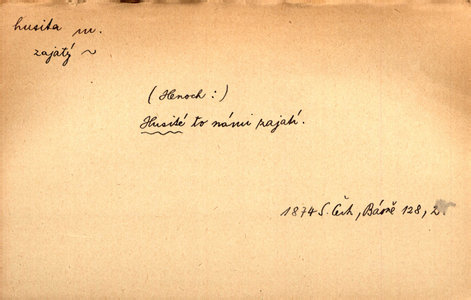 husita m.
zajatý ~
(Henoch:)
Husité to námi zajatí.
1874 S. Čech, Básně 128, 2.